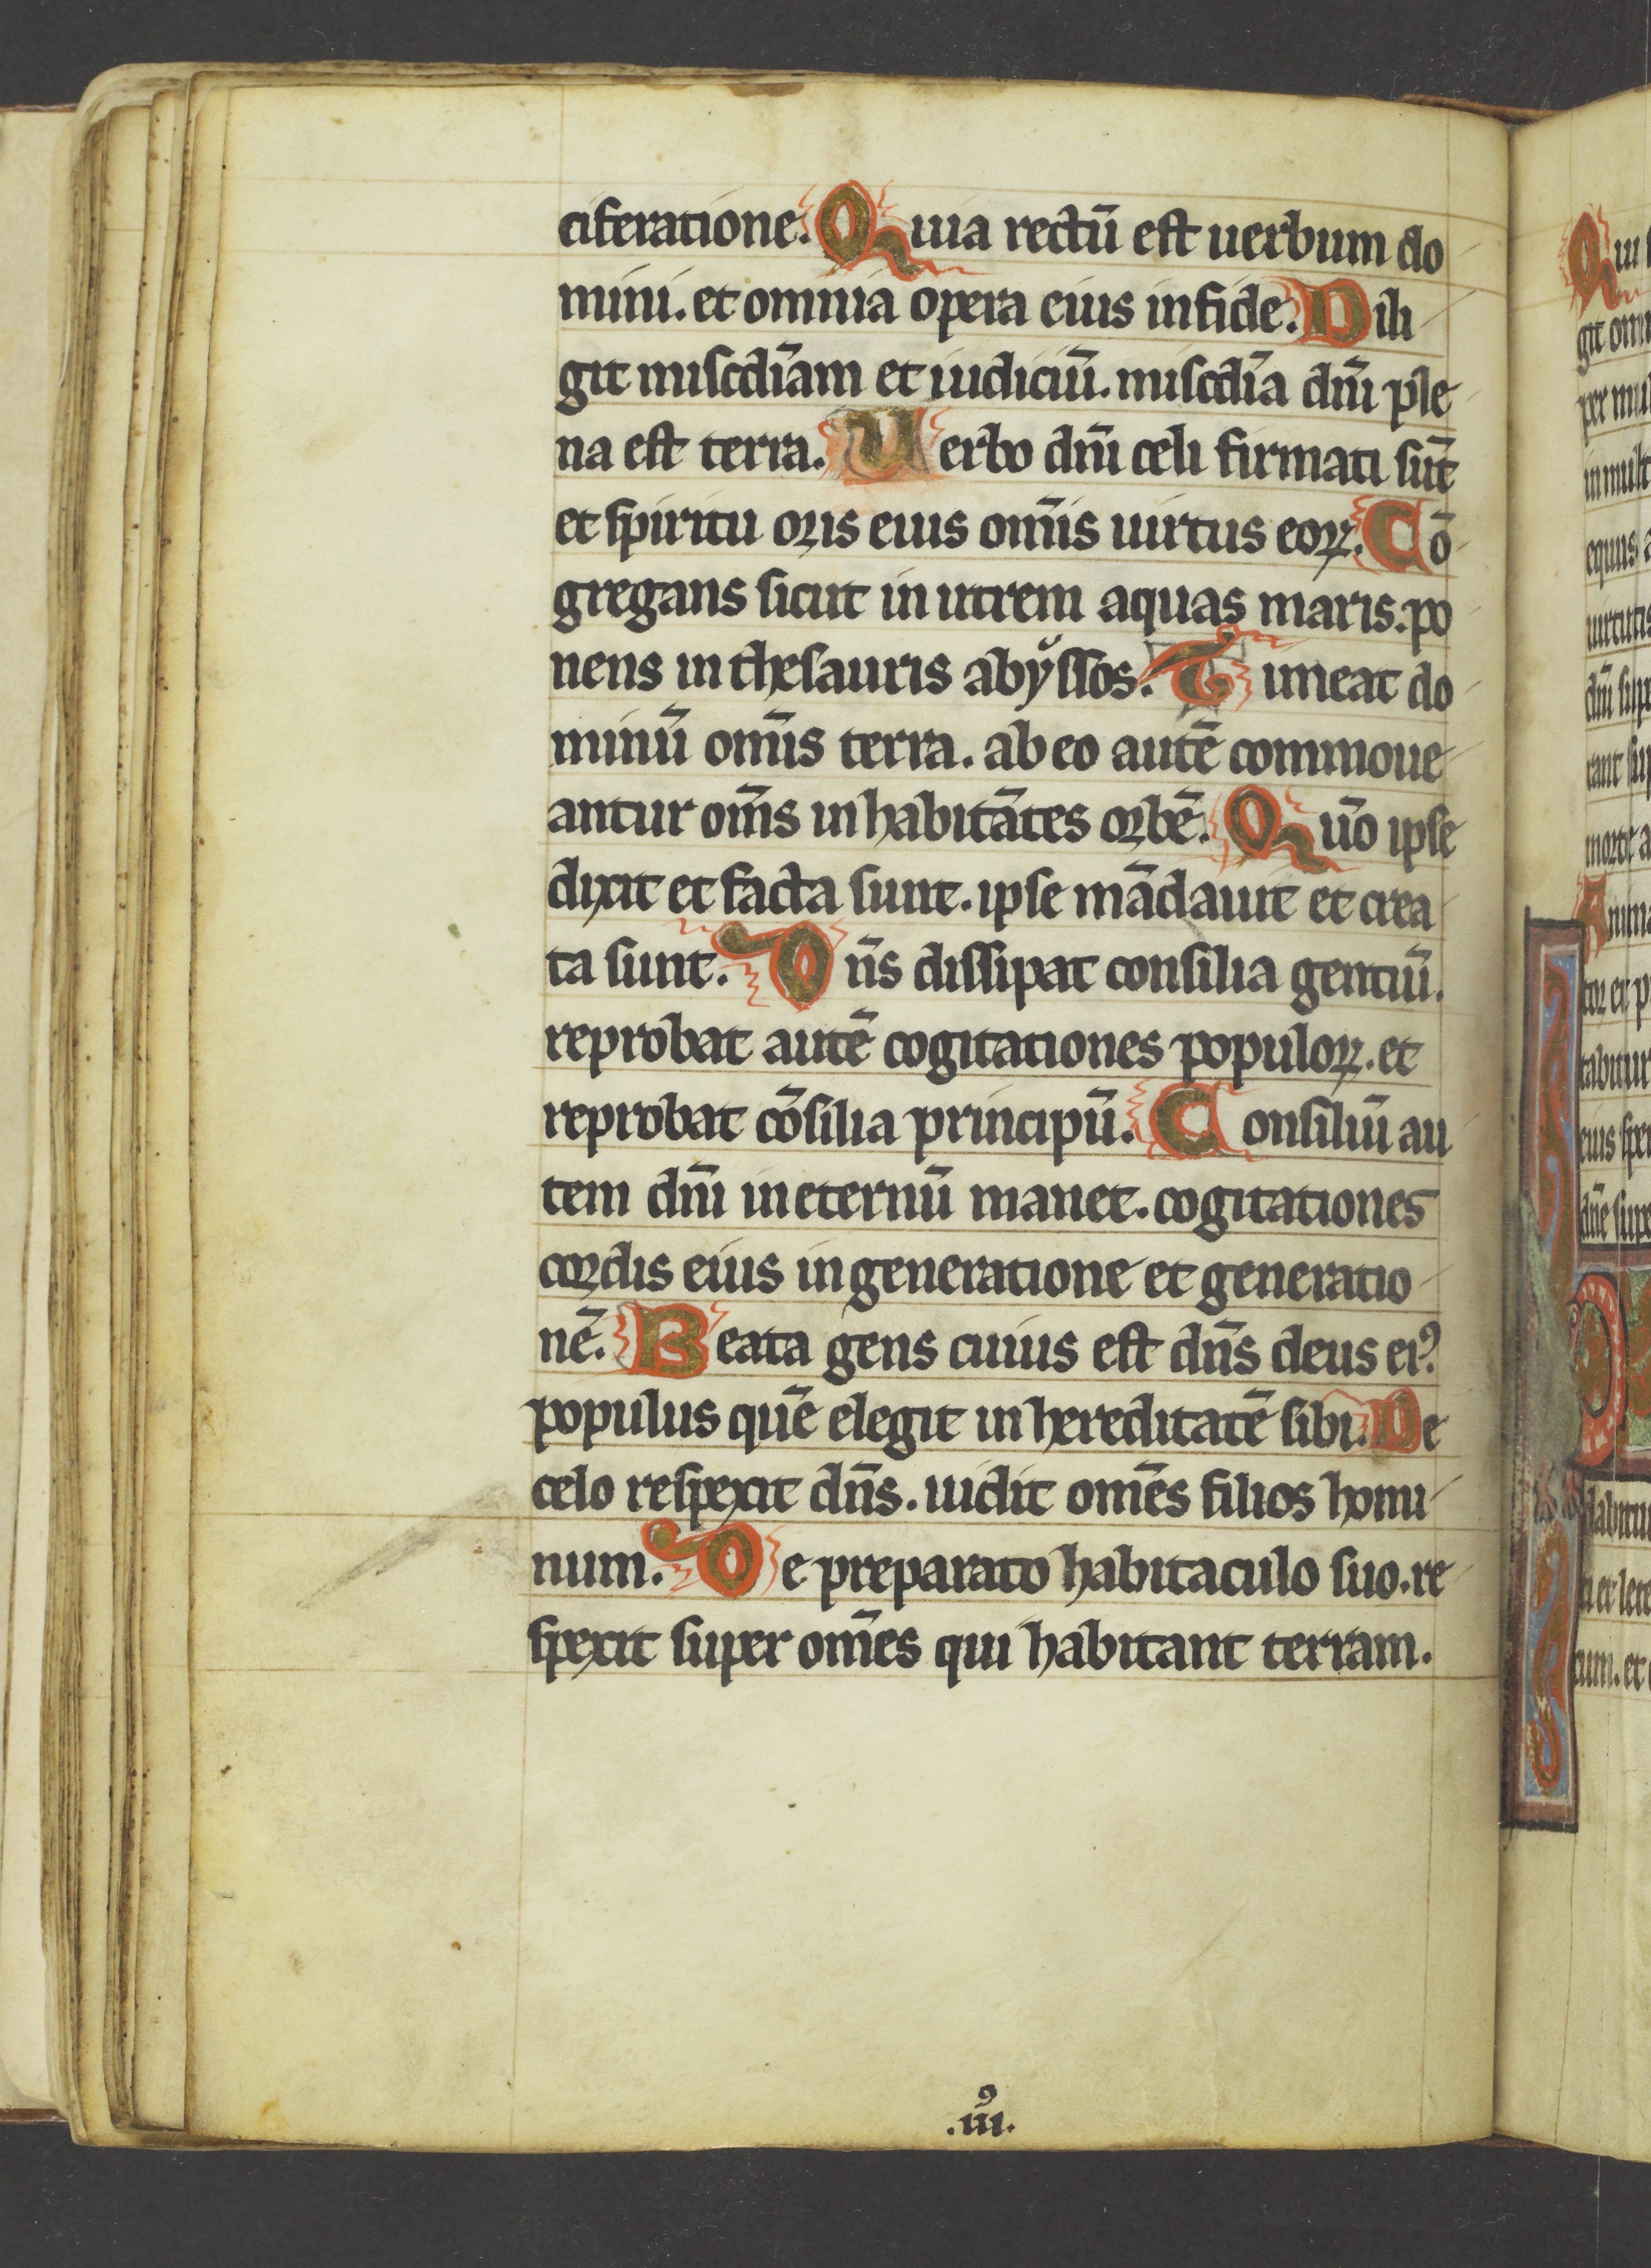 ciferatione. Quia rectū est uerbum do
mini. et omnia opera eius in fide. Dili
git miscd̄iam et iudiciū. miscd̄ia dn̄i ple
na est terra. Uerbo dn̄i celi firmati sūt
et spiritu oris eius om̄is uirtus eoꝝ. Cō
gregans sicut in utrem aquas maris. po
nens in thesauris abyssos. Timeat do
minū om̄is terra. ab eo autē commoue
antur om̄s inhabitātes orbē. Qūo ipse
dixit et facta sunt. ipse mādauit et crea
ta sunt. Dn̄s dissipat consilia gentiū.
reprobat autē cogitationes populoꝝ. et
reprobat cōsilia principū. Consiliū au
tem dn̄i in eternū manet. cogitationes
cordis eius in generatione et generatio
nē. Beata gens cuius est dn̄s deus eiꝰ.
populus quē elegit in hereditatē sibi. De
celo respexit dn̄s. uidit om̄es filios homi
num. De preparato habitaculo suo. re
spexit super om̄es qui habitant terram.
.iiiꝰ.
Qui
git om
per mul
in mult
equus a
uirtutis
dn̄m sup
rant sup
morte a
Anima
tor et p
tabitur
eius spe
dn̄e supe
D
dabitur
ti et lete
tum. et